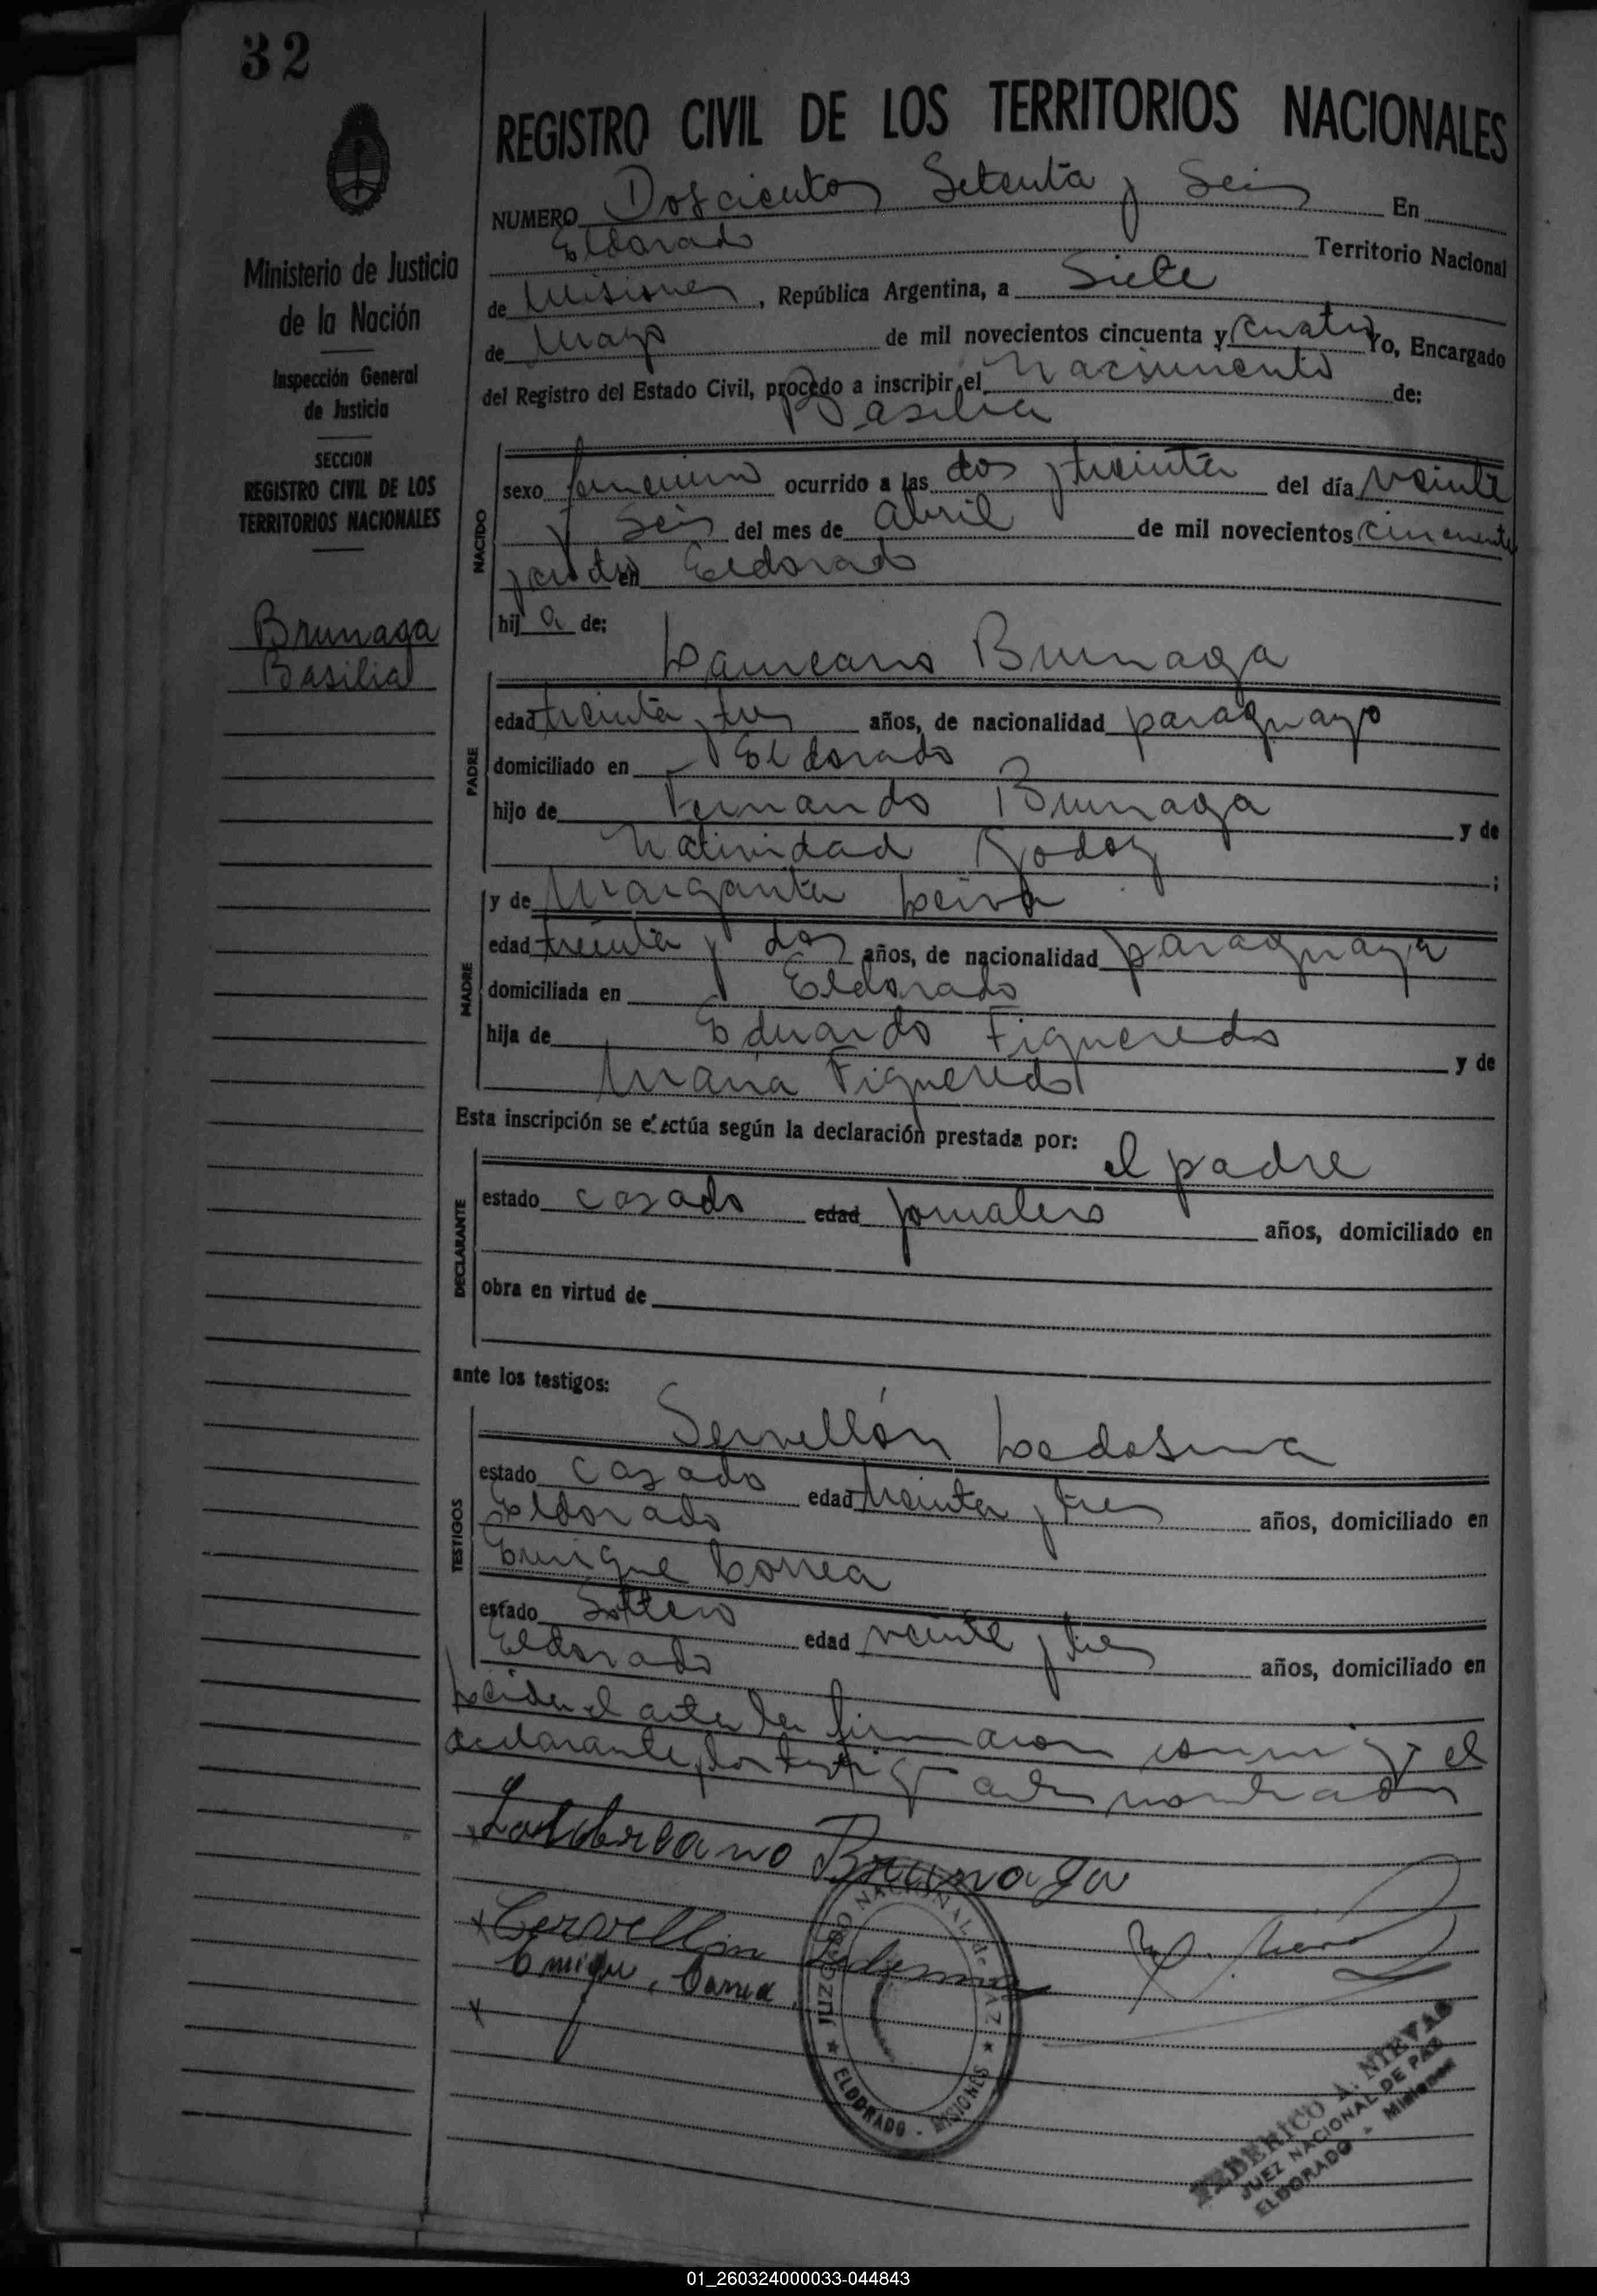 32
REGISTRO CIVIL DE LOS TERRITORIOS NACIONALES
NUMERO Doscientos Setenta y Seis En
Eldorado Territorio Nacional
de Misiones, República Argentina, a Siete
de Mayo de mil novecientos cincuenta y cuatro Yo, Encargado
del Registro del Estado Civil, procedo a inscribir el Nacimiento de:
Basilia
Ministerio de Justicia
de la Nación
Inspección General
de Justicia
SECCION
REGISTRO CIVIL DE LOS
TERRITORIOS NACIONALES
Brunaga
Basilia
NACIDO
sexo femenino ocurrido a las dos y treinta del día veinte
y Seis del mes de abril de mil novecientos cincuenta
y cuatro en Eldorado
hij a de:
Laureano Brunaga
PADRE
edad treinta y tres años, de nacionalidad paraguayo
domiciliado en Eldorado
hijo de Fernando Brunaga y de
Natividad Godoy ;
y de Margarita Leiva
MADRE
edad treinta y dos años, de nacionalidad paraguaya
domiciliada en Eldorado
hija de Eduardo Figueredo y de
María Figueredo
Esta inscripción se efectúa según la declaración prestada por:
el padre
DECLARANTE
estado casado edad jornalero años, domiciliado en
obra en virtud de
ante los testigos:
Servellón Ledesma
TESTIGOS
estado casado edad treinta y tres años, domiciliado en
Eldorado
Enrique Correa
estado Soltero edad veinte y tres años, domiciliado en
Eldorado
Leida el acta la firmaron conmigo el
declarante y los testigos antes nombrados
Brunaga
Cervellon Ledesma
Enrique Correa
JUZGADO NACIONAL de PAZ
ELDORADO - MISIONES
FEDERICO A. NIEVAS
JUEZ NACIONAL DE PAZ
ELDORADO - Misiones
01_260324000033-044843